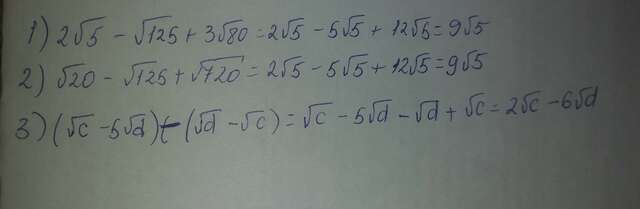 1) 2√5 - √125 + 3√80 = 2√5 - 5√5 + 12√5 = 9√5
2) √20 - √125 + √720 = 2√5 - 5√5 + 12√5 = 9√5
3) (√c - 5√d) - (√d - √c) = √c - 5√d - √d + √c = 2√c - 6√d